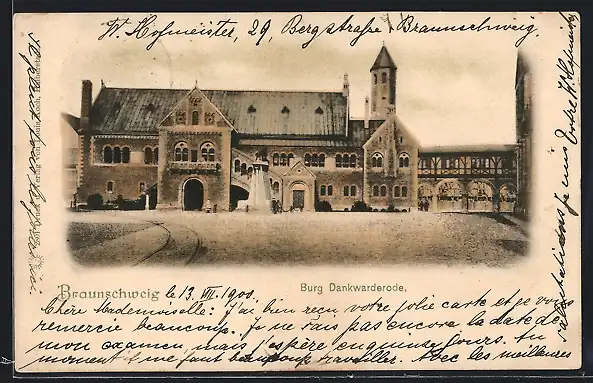 W. Hofmeister, 29, Bergstraße, Braunschweig.
Braunschweig le 13. VII. 1900.
Burg Dankwarderode.
Chère Mademoiselle: J'ai bien reçu votre jolie carte et je vous
remercie beaucoup. Je ne sais pas encore la date de
mon examen, mais j'espère en quinze jours. Au
moment il me faut beaucoup travailler. Avec les meilleures
salutations je suis
Votre W. Hofmeister